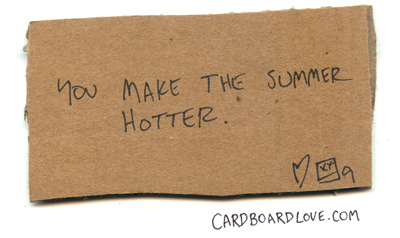 YOU MAKE THE SUMMER
HOTTER.
XY 9
CARDBOARDLOVE.COM